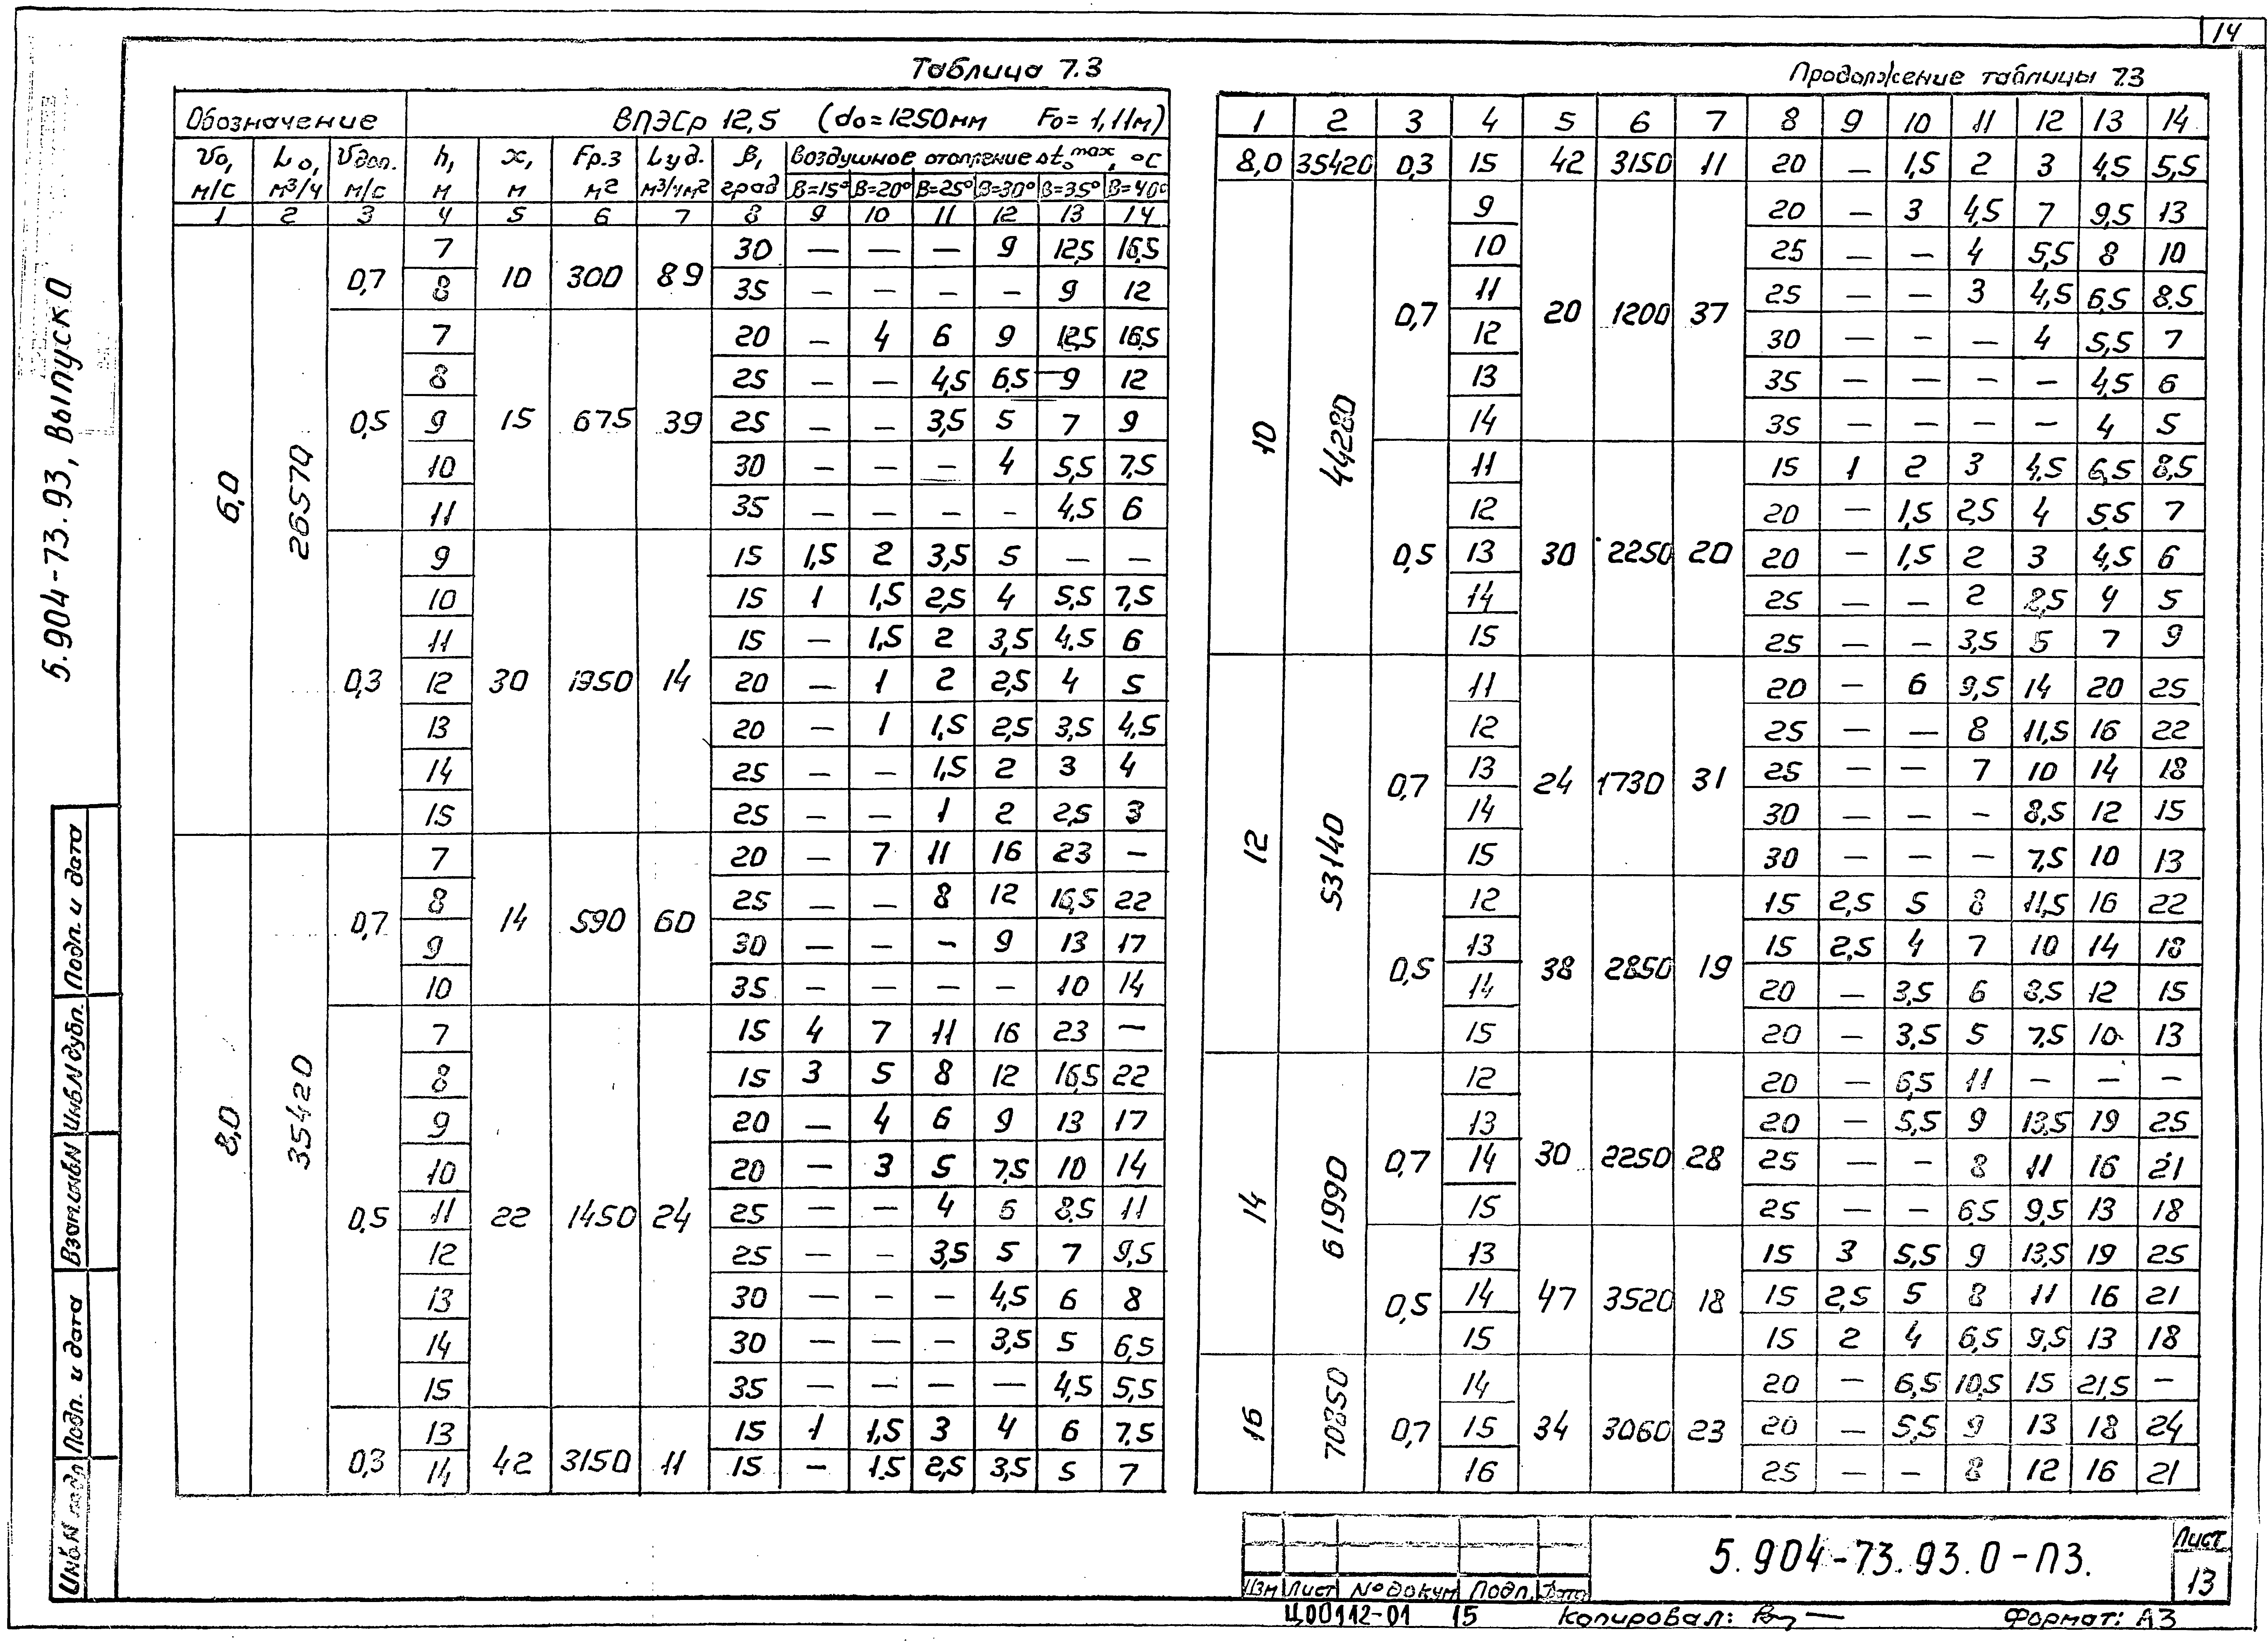 14
5.904-73.93, Выпуск 0
Таблица 7.3
Обозначение ВПЭСр 12,5 (dо=1250мм Fо=1,11м)
Vо, м/с Lо, м³/ч Vдоп. м/с h, м x, м Fр.з м² Lуд. м³/чм² β, град Воздушное отопление Δtо max, °С
В=15° В=20° В=25° В=30° В=35° В=40°
1 2 3 4 5 6 7 8 9 10 11 12 13 14
6,0 26570 0,7 7 10 300 89 30 — — — 9 12,5 16,5
8 35 — — — — 9 12
0,5 7 15 675 39 20 — 4 6 9 12,5 16,5
8 25 — — 4,5 6,5 9 12
9 25 — — 3,5 5 7 9
10 30 — — — 4 5,5 7,5
11 35 — — — — 4,5 6
0,3 9 30 1350 14 15 1,5 2 3,5 5 — —
10 15 1 1,5 2,5 4 5,5 7,5
11 15 — 1,5 2 3,5 4,5 6
12 20 — 1 2 2,5 4 5
13 20 — 1 1,5 2,5 3,5 4,5
14 25 — — 1,5 2 3 4
15 25 — — 1 2 2,5 3
8,0 35420 0,7 7 14 590 60 20 — 7 11 16 23 —
8 25 — — 8 12 16,5 22
9 30 — — — 9 13 17
10 35 — — — — 10 14
0,5 7 22 1450 24 15 4 7 11 16 23 —
8 15 3 5 8 12 16,5 22
9 20 — 4 6 9 13 17
10 20 — 3 5 7,5 10 14
11 25 — — 4 6 8,5 11
12 25 — — 3,5 5 7 9,5
13 30 — — — 4,5 6 8
14 30 — — — 3,5 5 6,5
15 35 — — — — 4,5 5,5
0,3 13 42 3150 11 15 1 1,5 3 4 6 7,5
14 15 — 1.5 2,5 3,5 5 7
Продолжение таблицы 7.3
1 2 3 4 5 6 7 8 9 10 11 12 13 14
8,0 35420 0,3 15 42 3150 11 20 — 1,5 2 3 4,5 5,5
10 44280 0,7 9 20 1200 37 20 — 3 4,5 7 9,5 13
10 25 — — 4 5,5 8 10
11 25 — — 3 4,5 6,5 8,5
12 30 — — — 4 5,5 7
13 35 — — — — 4,5 6
14 35 — — — — 4 5
0,5 11 30 2250 20 15 1 2 3 4,5 6,5 8,5
12 20 — 1,5 2,5 4 5,5 7
13 20 — 1,5 2 3 4,5 6
14 25 — — 2 2,5 4 5
15 25 — — 3,5 5 7 9
12 53140 0,7 11 24 1730 31 20 — 6 9,5 14 20 25
12 25 — — 8 11,5 16 22
13 25 — — 7 10 14 18
14 30 — — — 8,5 12 15
15 30 — — — 7,5 10 13
0,5 12 38 2850 19 15 2,5 5 8 11,5 16 22
13 15 2,5 4 7 10 14 18
14 20 — 3,5 6 8,5 12 15
15 20 — 3,5 5 7,5 10 13
14 61990 0,7 12 30 2250 28 20 — 6,5 11 — — —
13 20 — 5,5 9 13,5 19 25
14 25 — — 8 11 16 21
15 25 — — 6,5 9,5 13 18
0,5 13 47 3520 18 15 3 5,5 9 13,5 19 25
14 15 2,5 5 8 11 16 21
15 15 2 4 6,5 9,5 13 18
16 70850 0,7 14 34 3060 23 20 — 6,5 10,5 15 21,5 —
15 20 — 5,5 9 13 18 24
16 25 — — 8 12 16 21
Инв.N подл Подп. и дата Взам.инвN Инв.N дубл. Подп. и дата
Изм Лист №докум Подп. Дата
5.904-73.93.0-ПЗ.
Лист
13
Ц00112-01 15 Копировал: Формат: А3